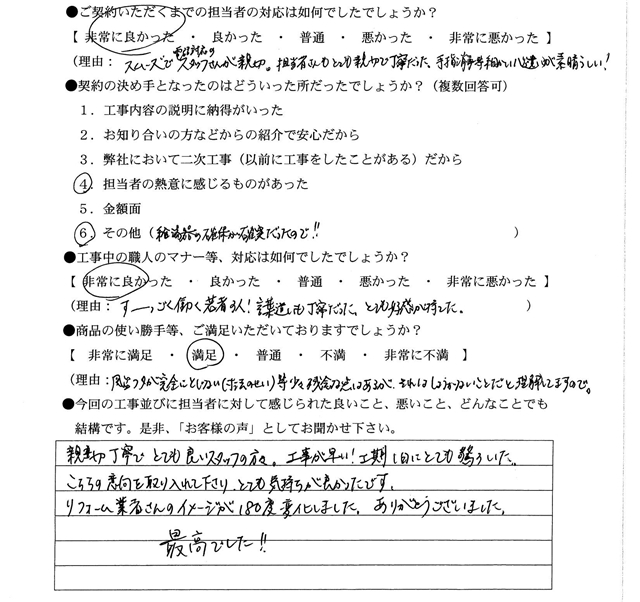 ●ご契約いただくまでの担当者の対応は如何でしたでしょうか？
【 非常に良かった ・ 良かった ・ 普通 ・ 悪かった ・ 非常に悪かった 】
（理由： スムーズで スタッフさんが親切。担当者さんもとても親切で丁寧だった、 素晴らしい！
●契約の決め手となったのはどういった所だったでしょうか？（複数回答可）
１．工事内容の説明に納得がいった
２．お知り合いの方などからの紹介で安心だから
３．弊社において二次工事（以前に工事をしたことがある）だから
４．担当者の熱意に感じるものがあった
５．金額面
６．その他（給湯器の確保が確実だったので!! ）
●工事中の職人のマナー等、対応は如何でしたでしょうか？
【 非常に良かった ・ 良かった ・ 普通 ・ 悪かった ・ 非常に悪かった 】
（理由： すーーっごく働く若者2人！ も丁寧だった、とても好感が持てました。 ）
●商品の使い勝手等、ご満足いただいておりますでしょうか？
【 非常に満足 ・ 満足 ・ 普通 ・ 不満 ・ 非常に不満 】
（理由：風呂フタが完全にとじない(寸法のせい)等少々残念な点はあるが、それはしょうがないことだと理解してますので。
●今回の工事並びに担当者に対して感じられた良いこと、悪いこと、どんなことでも
結構です。是非、「お客様の声」としてお聞かせ下さい。
親切丁寧で とても良いスタッフの方々。工事が早い！工期1日にとても驚ろいた。
こちらの意向を取り入れて下さり、とても気持ちが良かったです。
リフォーム業者さんのイメージが180度変化しました。ありがとうございました。
最高でした!!